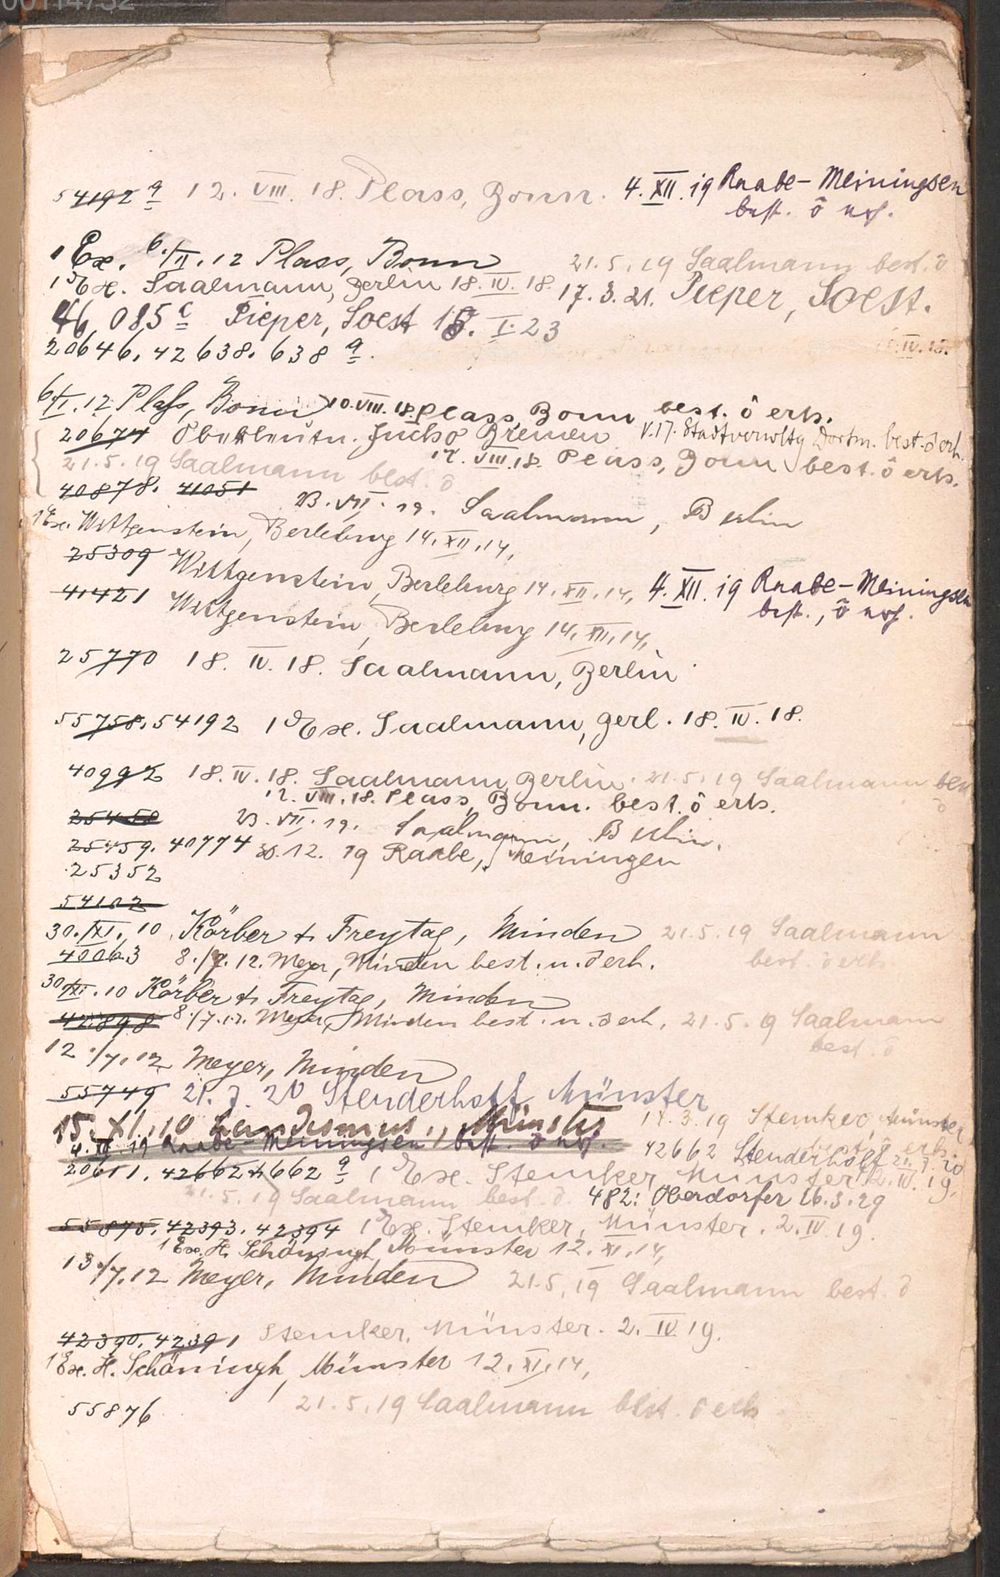 00114732
54192 a 12. VIII. 18. Plass, Bonn. 4. XII. 19 Raabe-Meiningsen
best. ô
1 Ex. 6./II. 12 Plass, Bonn 21.5.19 Saalmann best. ô
1 Ex. Saalmann, Berlin 18. IV. 18. 17. 3. 21. Pieper, Soest.
46,085 c Pieper, Soest 18. I. 23
20646. 42638. 638 a. IV. 18.
6/I. 12 Plass, Bonn 10. VIII. 18. Plass, Bonn best. ô erh.
20674 Bremen V.17. Stadtverwltg Dortm. best. ô erh.
21.5.19 Saalmann best. ô 12. VIII. 18. Plass, Bonn best. ô erh.
40878. 41051 23. VII. 19. Saalmann, Berlin
1 Ex. Wittgenstein, Berleburg 14. XII. 14,
25309 Wittgenstein, Berleburg 14. XII. 14, 4. XII. 19 Raabe-Meiningsen
41421 Wittgenstein, Berleburg 14. XII. 14, best., ô
25770 18. IV. 18. Saalmann, Berlin
55758. 54192 1 Ex. Saalmann, Berl. 18. IV. 18.
40992 18. IV. 18. Saalmann, Berlin. 21.5.19 Saalmann best
12. VIII. 18. Plass, Bonn. best. ô erh. ô
25458 23. VII. 19. Saalmann, Berlin.
25459. 40774 30. 12. 19 Raabe, Meiningen
25352
54102
30./XI. 10 Körber & Freytag, Minden 21.5.19 Saalmann
40063 8./7. 12. Meyer, Minden best. u. ô erh. best. ô erh
30/XI. 10 Körber & Freytag, Minden
42898 8./7.12. Meyer, Minden best. u. ô erh, 21.5.19 Saalmann
best. ô
12./7. 12 Meyer, Minden
55749 21. 7. 20 Stenderhoff Münster
15. XI. 10 Münster 17. 3. 19 Stemker, Münster
4. XII. 19 Raabe-Meiningsen, best. ô 42662 Stenderhoff 21. 7. 20
20611. 42662 + 662 a 1 Ex. Stemker Münster 2. IV. 19.
21.5.19 Saalmann best. ô. 482: Oberdorfer 26.3.29
55875. 42393. 42394 1 Ex. Stemker, Münster. 2. IV 19.
1 Ex. H. Schöningh, Münster 12. XI. 14,
13/7. 12 Meyer, Minden 21.5.19 Saalmann best. ô
42390. 42391 Stemker, Münster. 2. IV. 19.
1 Ex. H. Schöningh, Münster 12. XI. 14,
55876 21.5.19 Saalmann best. ô erh